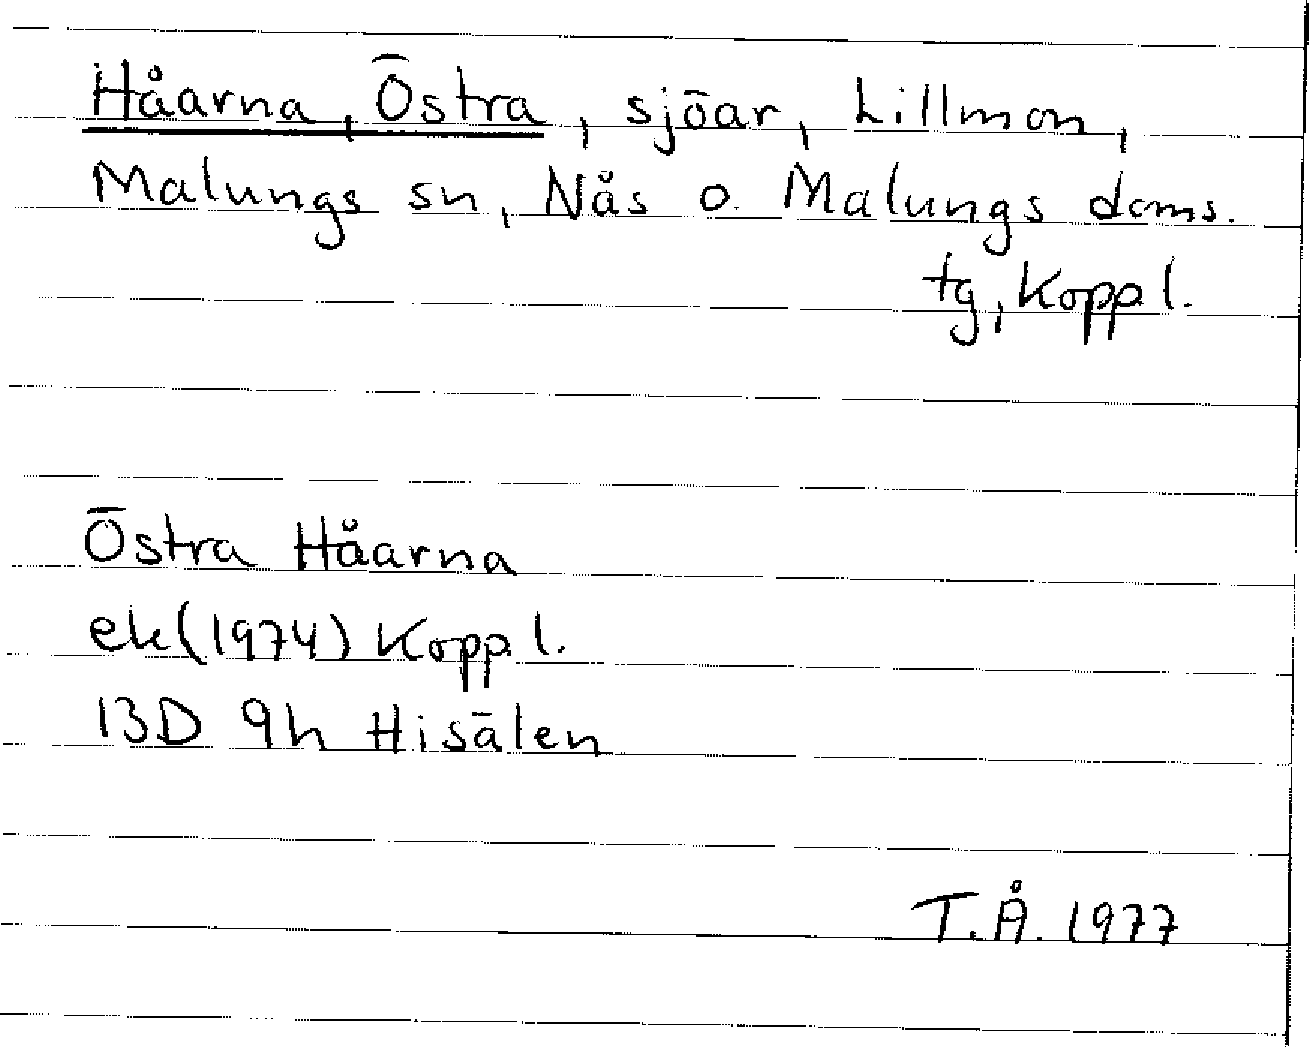 Håarna, Östra, sjöar, Lillmon,
Malungs sn, Nås o. Malungs doms.
tg, Koppl.
Östra Håarna
ek (1974) Koppl.
13D 9h Hisälen
T.Å. 1977